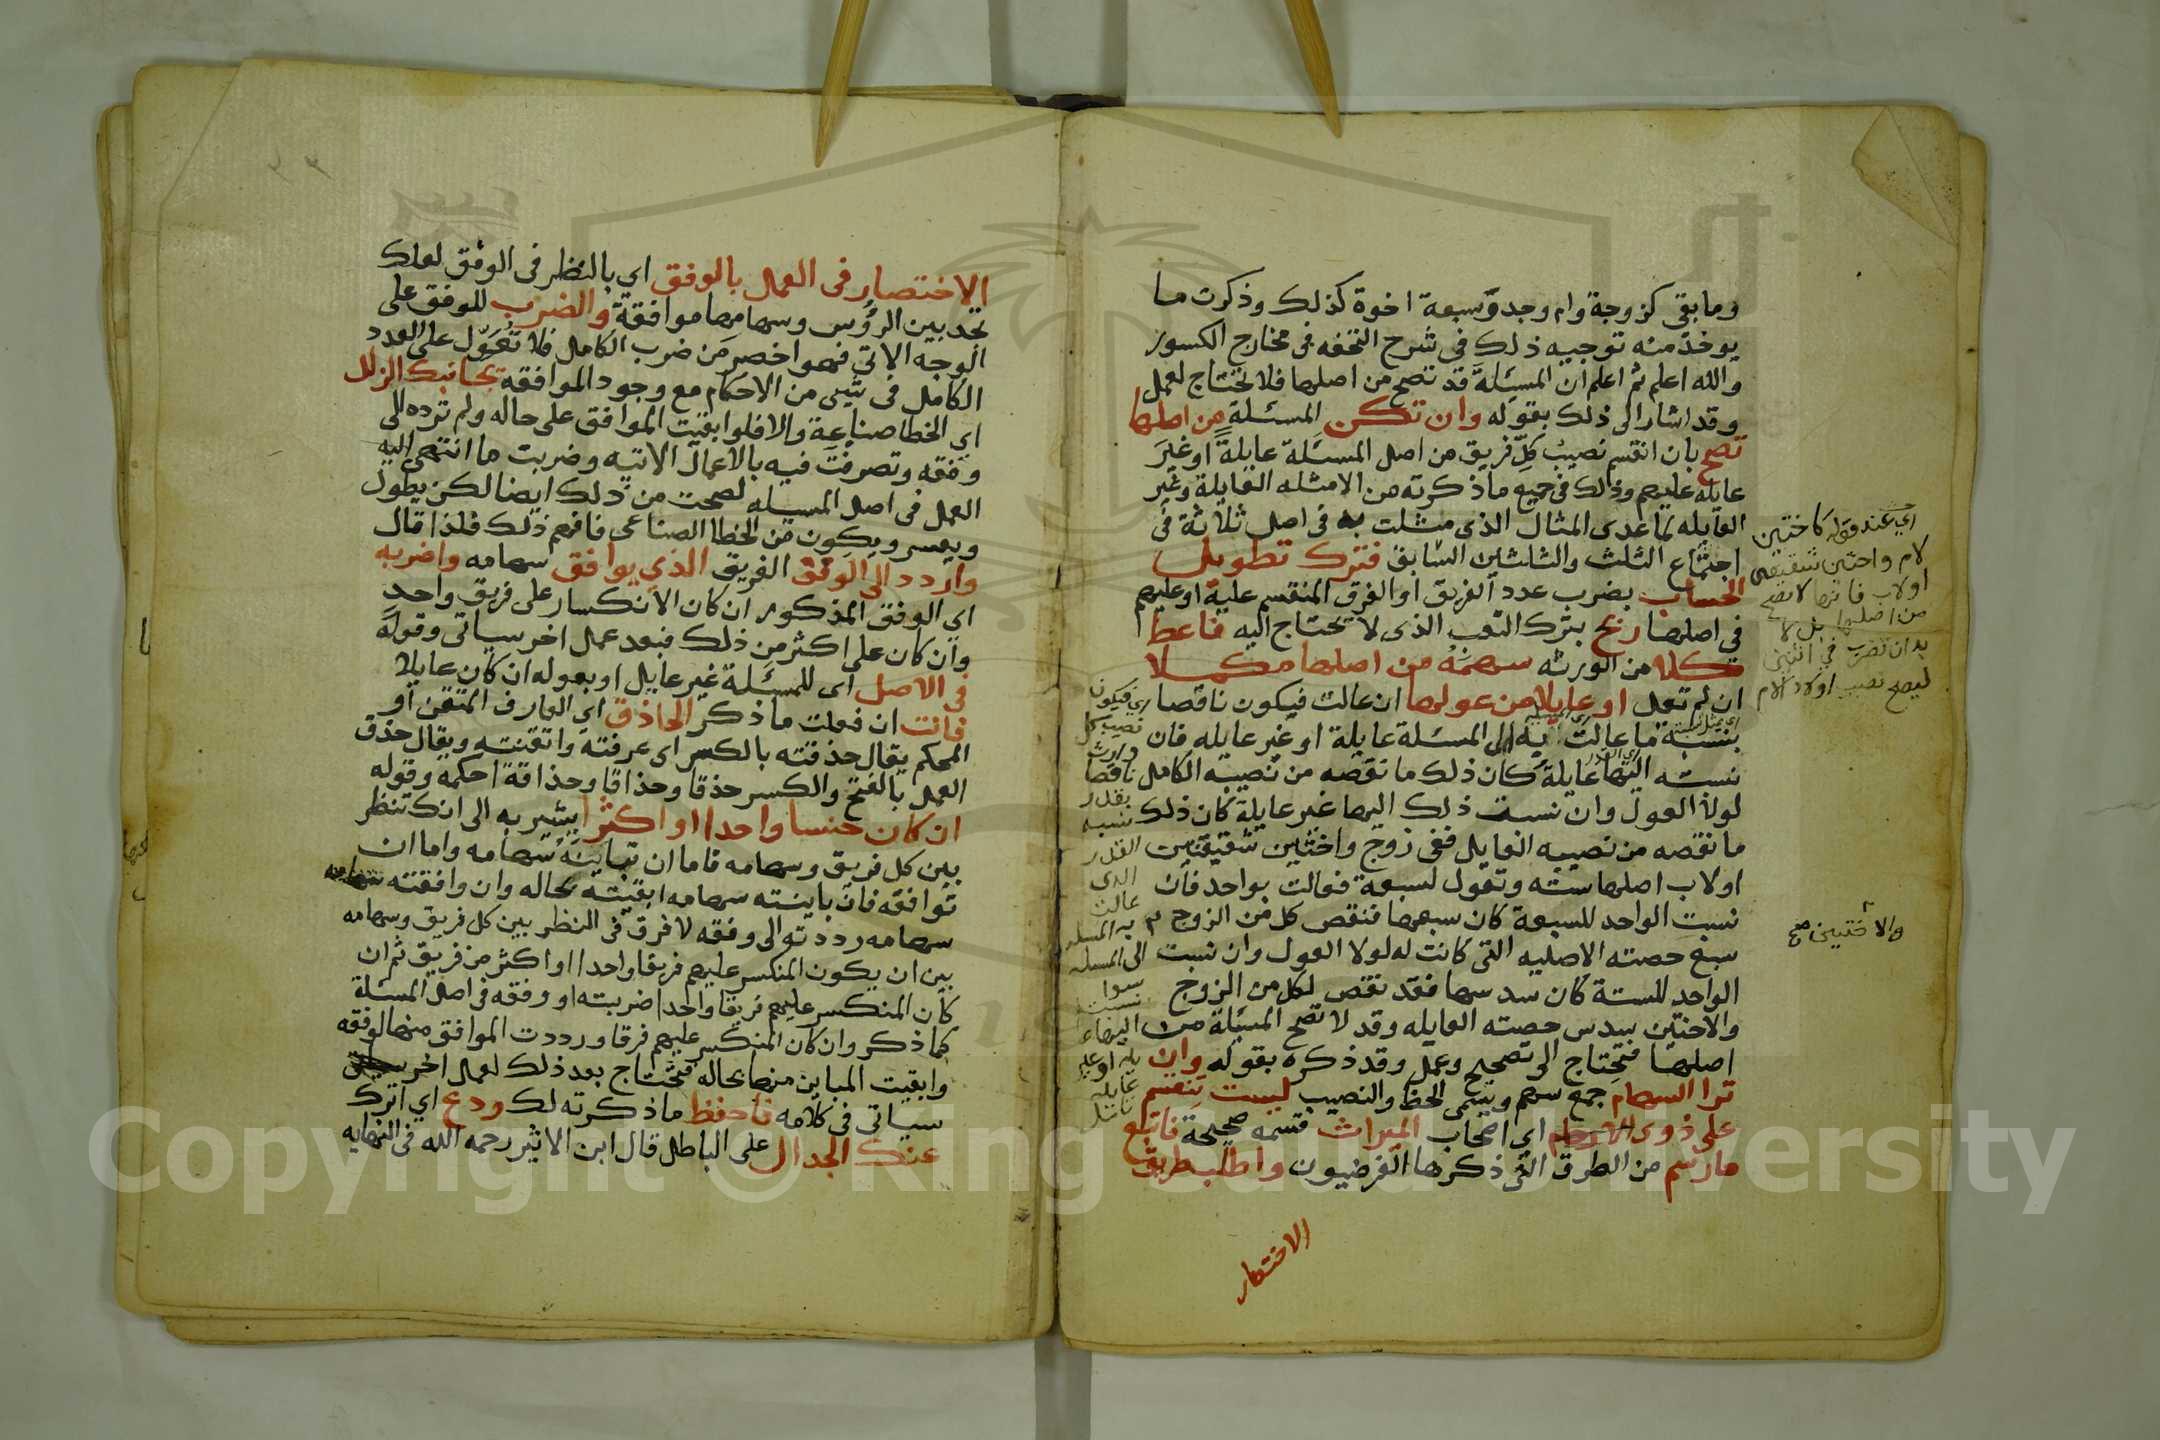 وما بقي كزوجة وام وجد وسبعة اخوة كذلك وذكرت ما
يوخذ منه توجيه ذلك في شرح التحفه في مخارج الكسور
والله اعلم ثم اعلم ان المسئلة قد تصح من اصلها فلا تحتاج لعمل
وقد اشار الى ذلك بقوله وان تكن المسئلة من اصلها
تصح بان انقسم نصيب كل فريق من اصل المسئلة عايلة او غير
عايله عليهم وذلك في جميع ما ذكرته من الامثله العايلة وغير
العايله ما عدى المثال الذي مثلت به في اصل ثلاثة في
اجتماع الثلث والثلثين السابق فترك تطويل
الحساب بضرب عدد الفريق او الفرق المنقسم علية او عليهم
في اصلها ربح بترك التعب الذي لا يحتاج اليه فاعط
كلا من الورثه سهمه من اصلها مكملا
ان لم تعل او عايلا من عولها ان عالت فيكون ناقصا
بنسبة ما عالت به الى المسئلة عايلة او غير عايله فان
نسبته اليها عايلة كان ذلك ما نقصه من نصيبه الكامل
لولا العول وان نسبت ذلك اليها غير عايلة كان ذلك
ما نقصه من نصيبه العايل ففي زوج واختين شقيقتين
او لاب اصلها سته وتعول لسبعة فعالت بواحد فان
نسبت الواحد للسبعة كان سبعها فنقص كل من الزوج
سبع حصته الاصليه التي كانت له لولا العول وان نسبت
الواحد للستة كان سدسها فقد نقص لكل من الزوج
والاختين سدس حصته العايله وقد لا تصح المسئلة من
اصلها فتحتاج الى تصحيح وعمل وقد ذكره بقوله وان
ترا السهام جمع سهم ويسمى الحظ والنصيب ليست تنقسم
على ذوي اي اصحاب الميراث قسمه صحيحة فاتبع
ما رسم من الطرق التي ذكرها الفرضيون واطلب طريق
الاختصار
اي عند قوله كاختين
لام واختين شقيقتين
او لاب فانها لا تصح
من اصلها بل لا
بد ان تضرب في اثنين
ليصح نصيب اولاد الام
والاختين صح
اي فيكون
نصيب كل
وارث
ناقصا
بقدر
نسبه
القدر
الذي
عالت
به المسله
الى المسله
سوا
نسبت
اليها
الاختصار في العمل بالوفق اي بالنظر في الوفق لعلك
تجد بين الرؤس وسهامها موافقة والضرب للوفق على
الوجه الاتي فهو اخصر من ضرب الكامل فلا تعول على العدد
الكامل في شيء من الاحكام مع وجود الموافقه يجانبك الزلل
اي الخطا صناعة والا فلو ابقيت الموافق على حاله ولم ترده الى
وفقه وتصرفت فيه بالاعمال الاتيه وضربت ما انتهى اليه
العمل في اصل المسيله لصحت من ذلك ايضا لكن يطول
ويعسر ويكون من الخطا الصناعي فافهم ذلك فلذا قال
واردد الى الوفق الفريق الذي يوافق سهامه واضربه
اي الوفق المذكور ان كان الانكسار على فريق واحد
وان كان على اكثر من ذلك فبعد عمل اخر سياتي وقوله
في الاصل اي للمسئلة غير عايل او بعوله ان كان عايلا
فانت ان فعلت ما ذكر الحاذق اي العارف المتقن او
المحكم يقال حذقته بالكسر اي عرفته واتقنته ويقال حذق
العمل بالفتح والكسر حذقا وحذاقا وحذاقة احكمه وقوله
ان كان جنسا واحدا او اكثرا يشير به الى انك تنظر
بين كل فريق وسهامه فاما ان تباينه سهامه واما ان
توافقه فان باينته سهامه ابقيته بحاله وان وافقته
سهامه رددته الى وفقه لا فرق في النظر بين كل فريق وسهامه
بين ان يكون المنكسر عليهم فريقا واحدا او اكثر من فريق ثم ان
كان المنكسر عليهم فريقا واحدا ضربته او وفقه في اصل المسئلة
كما ذكر وان كان المنكسر عليهم فرقا ورددت الموافق منها لوفقه
وابقيت المباين منها بحاله فتحتاج بعد ذلك لعمل اخر
سياتي في كلامه فاحفظ ما ذكرته لك ودع اي اترك
عنك الجدال على الباطل قال ابن الاثير رحمه الله في النهايه
Copyright © King Saud University